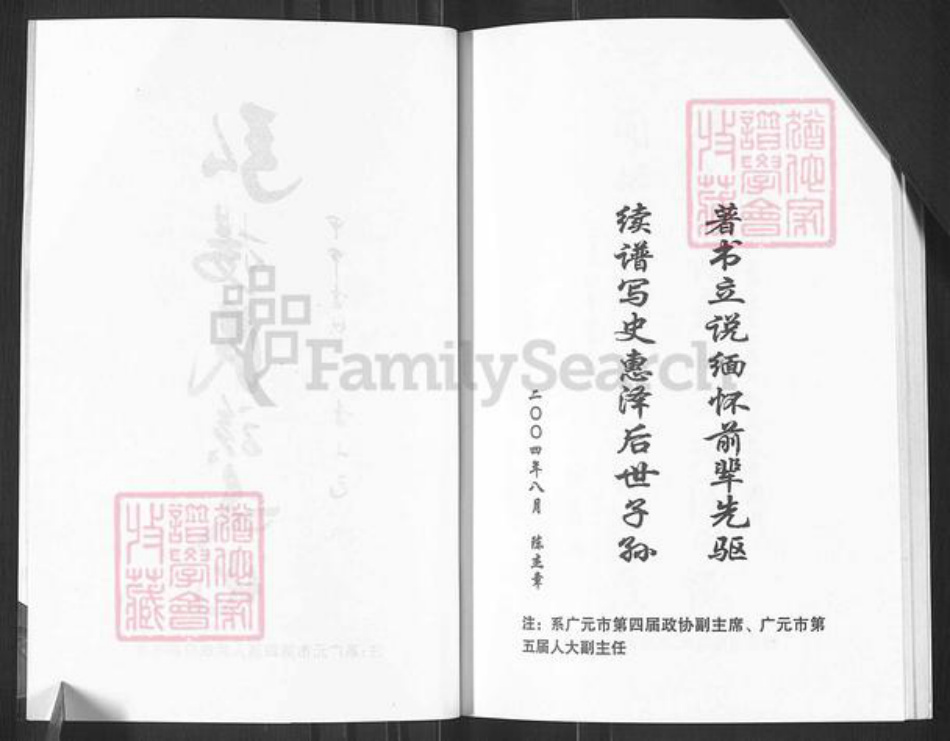 著书立说缅怀前辈先驱
续谱写史惠泽后世子孙
二〇〇四年八月 陈杰章
注：系广元市第四届政协副主席、广元市第
五届人大副主任
FamilySearch
譜學會
收藏
譜學會
收藏